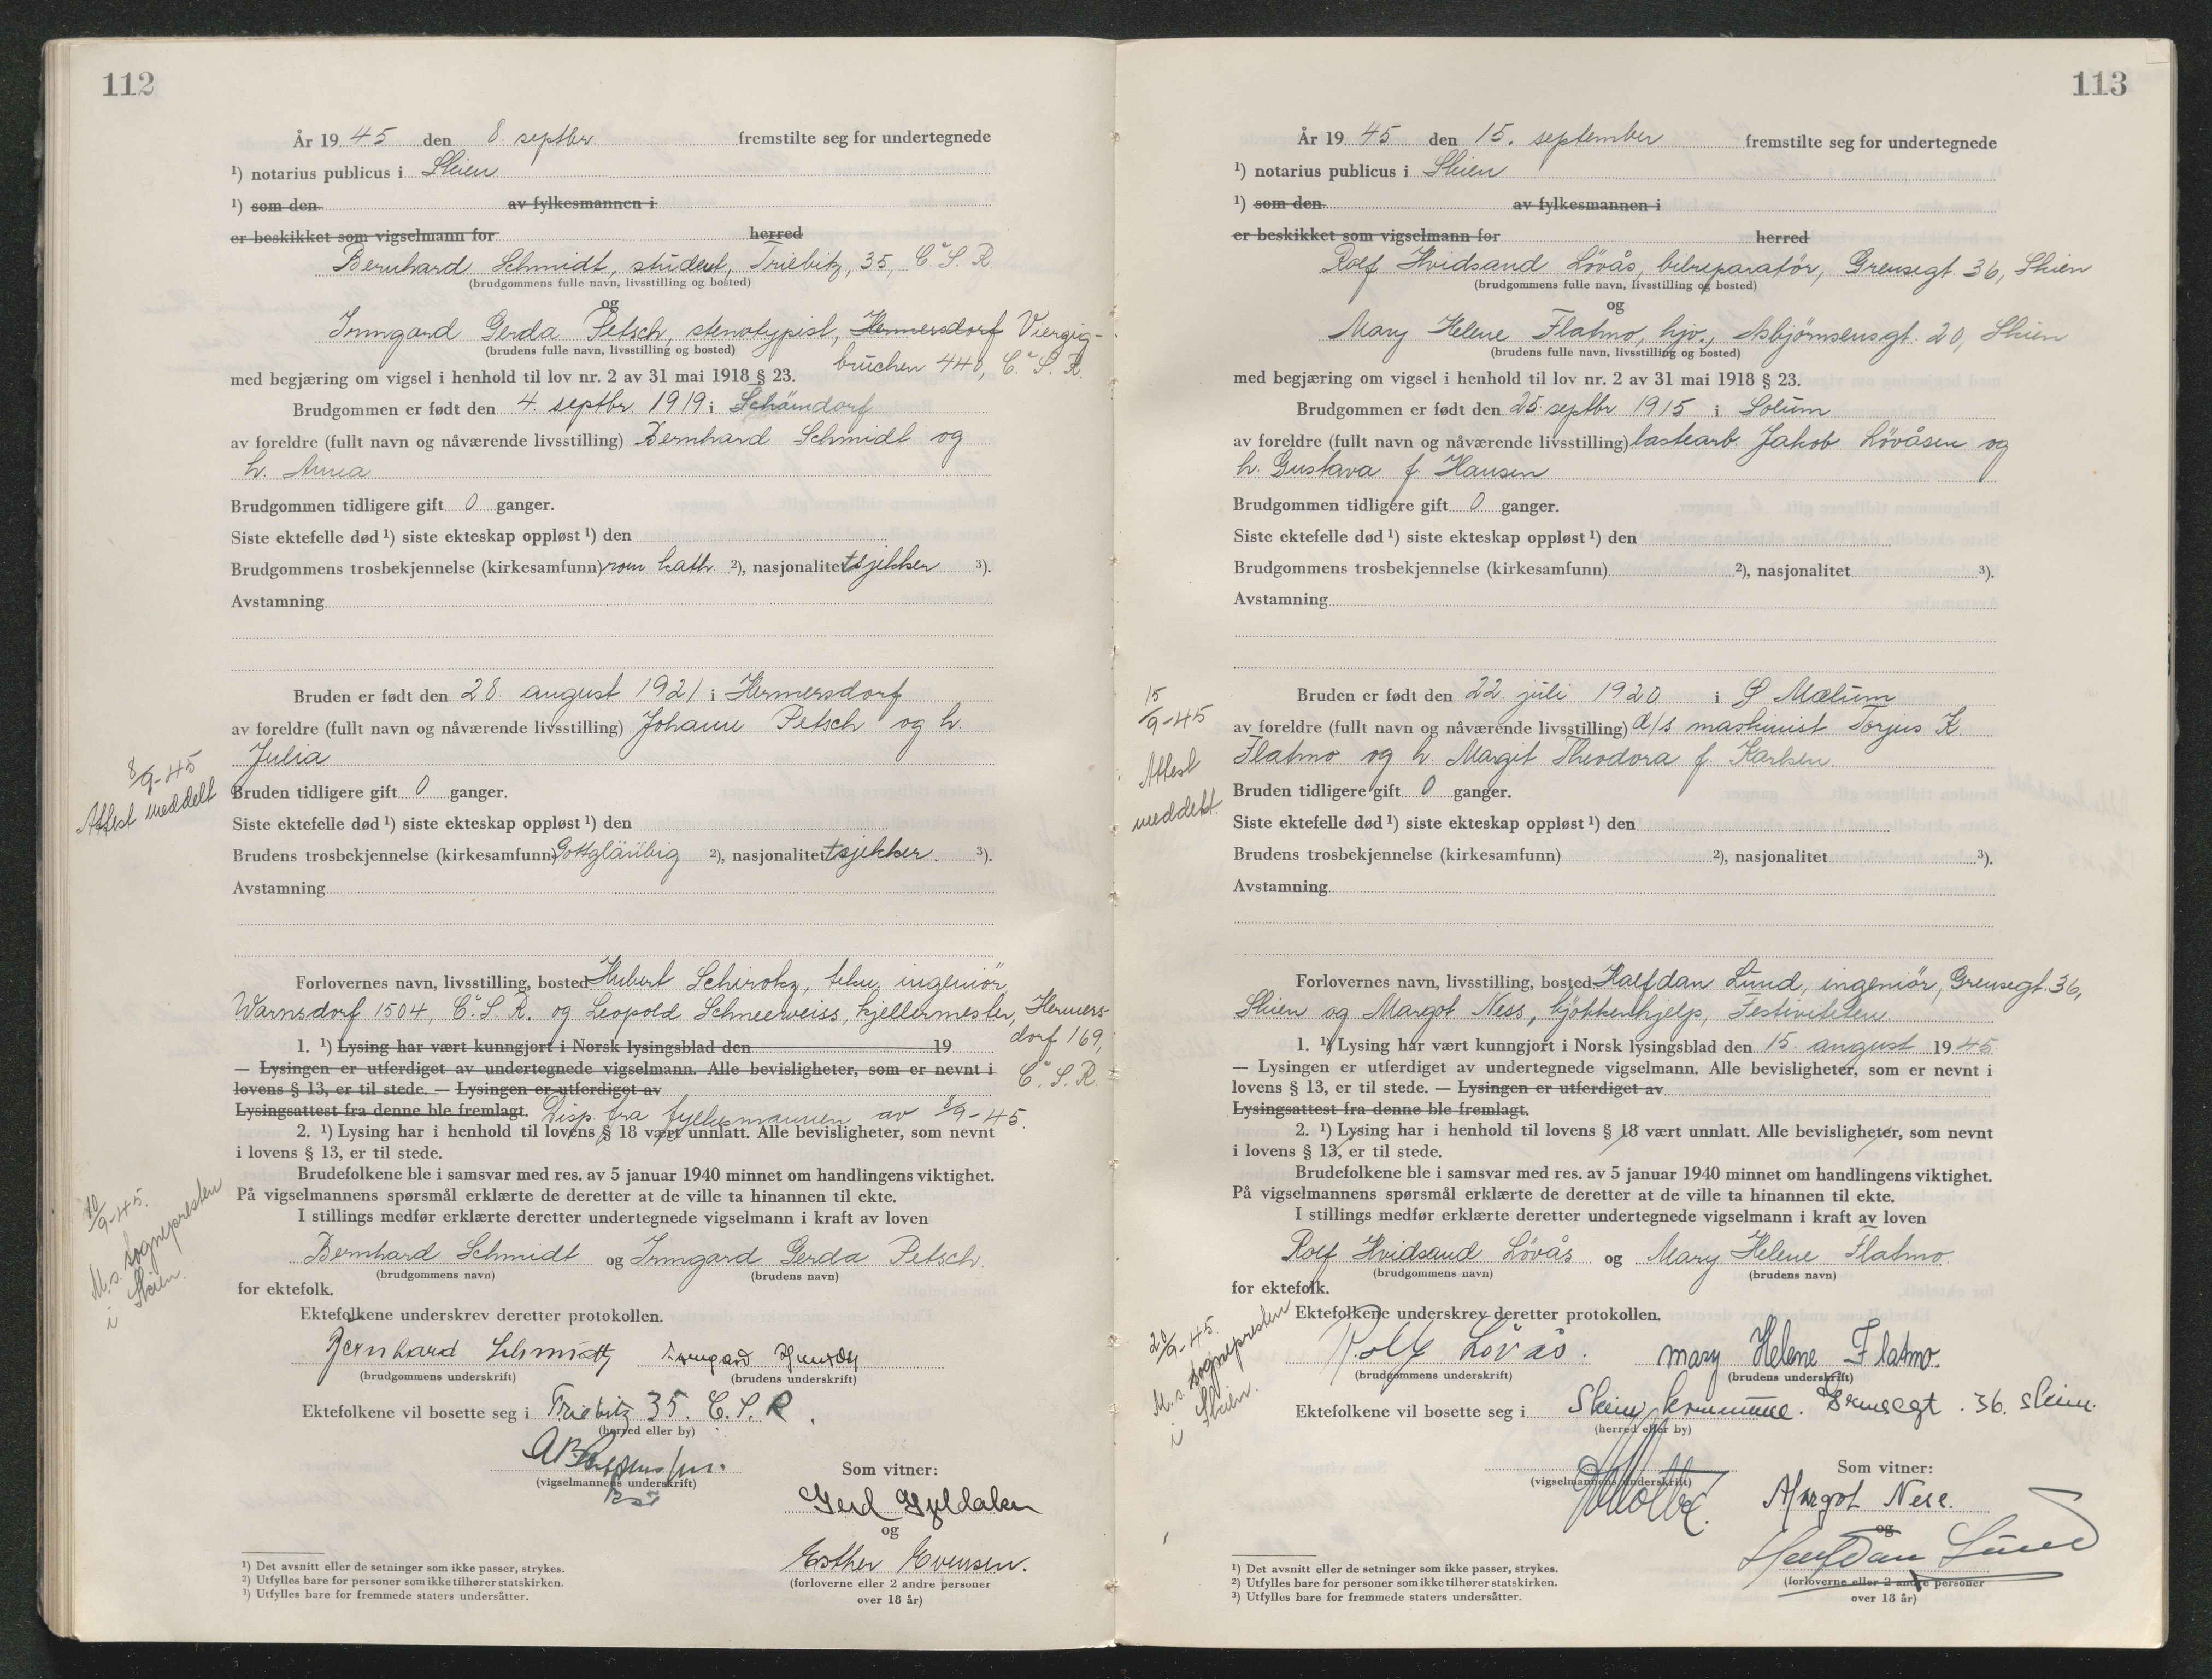 112
År 19 45 den 8. septbr. fremstilte seg for undertegnede
1) notarius publicus i Skien
1) som den av fylkesmannen i
er beskikket som vigselmann for herred
Bernhard Schmidt, student, Triebitz, 35, Č. S. R.
(brudgommens fulle navn, livsstilling og bosted)
og
Irmgard Gerda Petsch, stenotypist, Hermersdorf Vierzig-
(brudens fulle navn, livsstilling og bosted)
bruchen 440, Č. S. R.
med begjæring om vigsel i henhold til lov nr. 2 av 31 mai 1918 § 23.
Brudgommen er født den 4. septbr. 1919 i
av foreldre (fullt navn og nåværende livsstilling) Bernhard Schmidt og
h. Anna
Brudgommen tidligere gift 0 ganger.
Siste ektefelle død 1) siste ekteskap oppløst 1) den
Brudgommens trosbekjennelse (kirkesamfunn) rom kath. 2), nasjonalitet tsjekker 3).
Avstamning
Bruden er født den 28. august 1921 i Hermersdorf
av foreldre (fullt navn og nåværende livsstilling) Johann Petsch og h.
Julia
8/9-45
Attest meddelt
Bruden tidligere gift 0 ganger.
Siste ektefelle død 1) siste ekteskap oppløst 1) den
Brudens trosbekjennelse (kirkesamfunn) Gottgläubig 2), nasjonalitet tsjekker. 3).
Avstamning
Forlovernes navn, livsstilling, bosted Hubert Schirotz, tekn. ingeniör,
Warnsdorf 1504, Č. S. R. og Leopold Schneeweiss, kjellermester, Hermers-
dorf 169,
Č. S. R.
1. 1) Lysing har vært kunngjort i Norsk lysingsblad den 19
— Lysingen er utferdiget av undertegnede vigselmann. Alle bevisligheter, som er nevnt i
lovens § 13, er til stede. — Lysingen er utferdiget av
Lysingsattest fra denne ble fremlagt. Disp. fra fylkesmannen av 8/9-45.
2. 1) Lysing har i henhold til lovens § 18 vært unnlatt. Alle bevisligheter, som nevnt
i lovens § 13, er til stede.
Brudefolkene ble i samsvar med res. av 5 januar 1940 minnet om handlingens viktighet.
På vigselmannens spørsmål erklærte de deretter at de ville ta hinannen til ekte.
I stillings medfør erklærte deretter undertegnede vigselmann i kraft av loven
10/9-45.
M.s. sognepresten
i Skien.
Bernhard Schmidt og Irmgard Gerda Petsch.
(brudgommens navn) (brudens navn)
for ektefolk.
Ektefolkene underskrev deretter protokollen.
Bernhard Schmidt Irmgard
(brudgommens underskrift) (brudens underskrift)
Ektefolkene vil bosette seg i Triebitz 35. C. S. R.
(herred eller by)
(vigselmannens underskrift)
Som vitner:
Gerd Gyldaker
og
Esther Evensen.
(forloverne eller 2 andre personer
over 18 år)
1) Det avsnitt eller de setninger som ikke passer, strykes.
2) Utfylles bare for personer som ikke tilhører statskirken.
3) Utfylles bare for fremmede staters undersåtter.
113
År 19 45 den 15. september fremstilte seg for undertegnede
1) notarius publicus i Skien
1) som den av fylkesmannen i
er beskikket som vigselmann for herred
Rolf Hvidsand Lövås, bilreparatör, Grensegt. 36, Skien
(brudgommens fulle navn, livsstilling og bosted)
og
Mary Helene Flatmo, hjv., Asbjörnsensgt. 20, Skien
(brudens fulle navn, livsstilling og bosted)
med begjæring om vigsel i henhold til lov nr. 2 av 31 mai 1918 § 23.
Brudgommen er født den 25. septbr 1915 i Solum
av foreldre (fullt navn og nåværende livsstilling) lastearb. Jakob Lövåsen og
h. Gustava f. Hansen
Brudgommen tidligere gift 0 ganger.
Siste ektefelle død 1) siste ekteskap oppløst 1) den
Brudgommens trosbekjennelse (kirkesamfunn) 2), nasjonalitet 3).
Avstamning
15/9-45
Attest
meddelt.
Bruden er født den 22. juli 1920 i S Mælum
av foreldre (fullt navn og nåværende livsstilling) d/s maskinist Torjus K.
Flatmo og h. Margit Theodora f. Karlsen
Bruden tidligere gift 0 ganger.
Siste ektefelle død 1) siste ekteskap oppløst 1) den
Brudens trosbekjennelse (kirkesamfunn) 2), nasjonalitet 3).
Avstamning
Forlovernes navn, livsstilling, bosted Halfdan Lund, ingeniör, Grensegt. 36,
Skien og Margot Ness, kjökkenhjelp, Festiviteten.
1. 1) Lysing har vært kunngjort i Norsk lysingsblad den 15. august 1945
— Lysingen er utferdiget av undertegnede vigselmann. Alle bevisligheter, som er nevnt i
lovens § 13, er til stede. — Lysingen er utferdiget av
Lysingsattest fra denne ble fremlagt.
2. 1) Lysing har i henhold til lovens § 18 vært unnlatt. Alle bevisligheter, som nevnt
i lovens § 13, er til stede.
Brudefolkene ble i samsvar med res. av 5 januar 1940 minnet om handlingens viktighet.
På vigselmannens spørsmål erklærte de deretter at de ville ta hinannen til ekte.
I stillings medfør erklærte deretter undertegnede vigselmann i kraft av loven
Rolf Hvidsand Lövås og Mary Helene Flatmo.
(brudgommens navn) (brudens navn)
for ektefolk.
20/9-45.
M.s. sognepresten
i Skien.
Ektefolkene underskrev deretter protokollen.
Rolf Lövås. Mary Helene Flatmo.
(brudgommens underskrift) (brudens underskrift)
Ektefolkene vil bosette seg i Skien kommune. Grensegt. 36. Skien.
(herred eller by)
(vigselmannens underskrift)
Som vitner:
Margot Nese.
og
Halfdan Lund
(forloverne eller 2 andre personer
over 18 år)
1) Det avsnitt eller de setninger som ikke passer, strykes.
2) Utfylles bare for personer som ikke tilhører statskirken.
3) Utfylles bare for fremmede staters undersåtter.